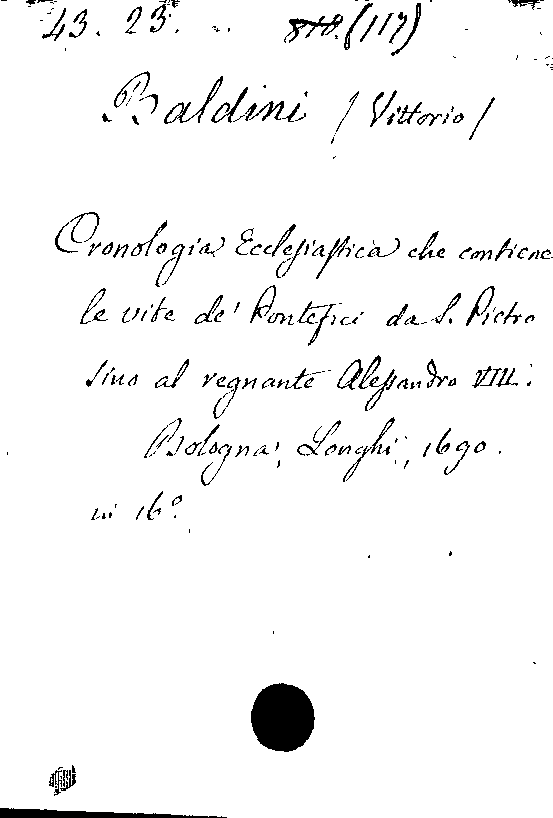 43. 23. (117)
Baldini / Vittorio /
Cronologia Ecclesiastica che contiene
le vite de' Pontefici da S. Pietro
sino al regnante Alessandro VIII.
Bologna, Longhi, 1690.
in 16°.